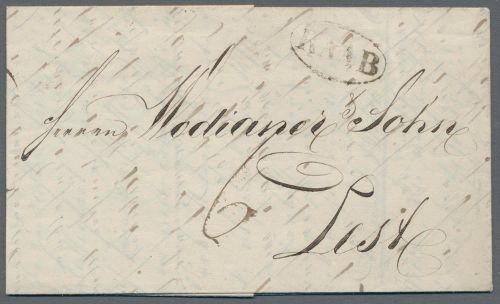 RAAB
Herren Wodianer & Sohn
6
Pest